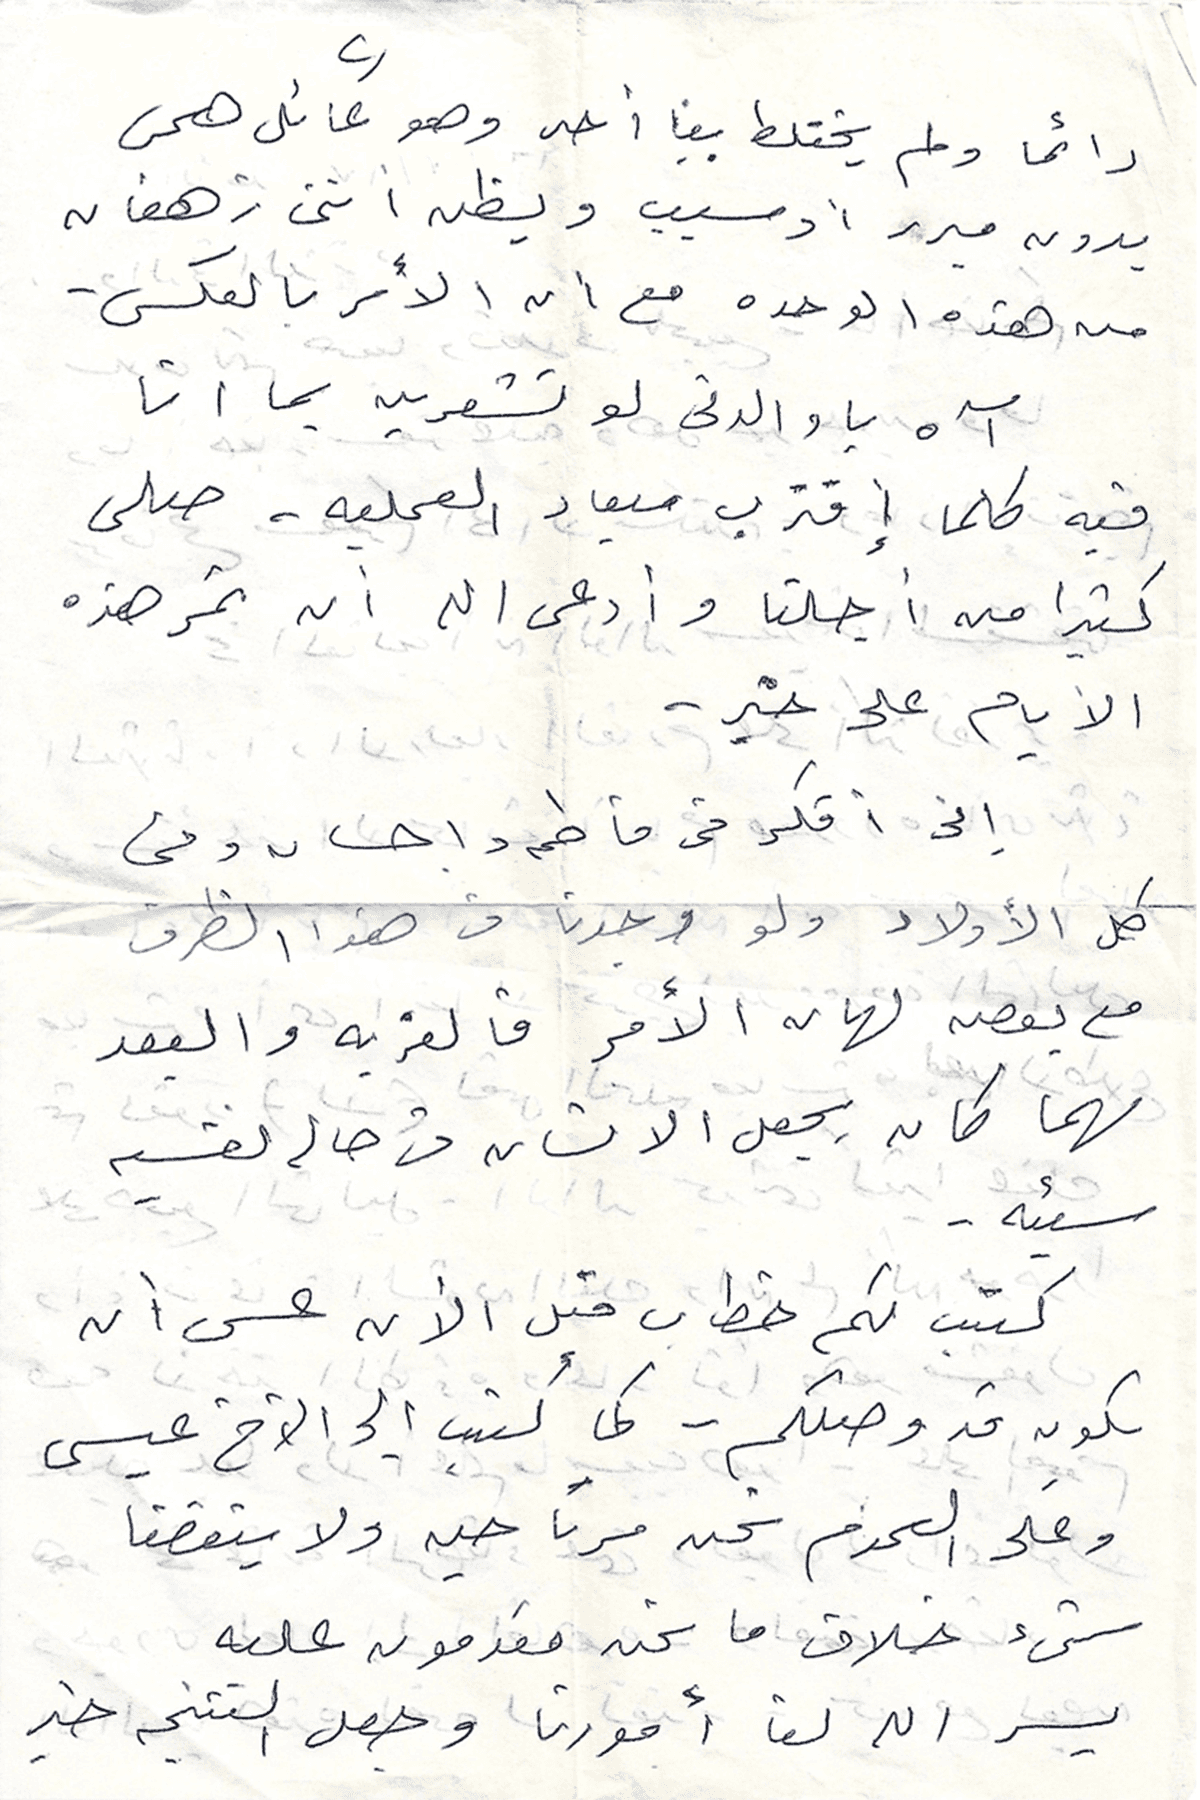 ٢
دائما ولم يختلط بنا أحد وهو عائل همى
بدون مبرر أو سبب ويظن اننى زهقان
من هذه الوحده مع ان الأمر بالعكس -
آه يا والدتى لو تشعرين بما انا
فيه كلما إقترب ميعاد العمليه - صلى
كثيرا من أجلنا وأدعى الله أن تمر هذه
الأيام على خير -
إنى أفكر فى فاطمه واحسان وفى
كل الأولاد ولو وجدنا فى هذا الظرف
مع بعض لهان الأمر فالغربه والبعد
مهما كان يجعل الانسان فى حاله نفسيه
سيئه -
كتبت لكم خطاب قبل الآن عسى أن
يكون قد وصلكم - كما كتبت إلى الأخ عيسى
وعلى العموم نحن مرتاحين ولا ينقصنا
شىء خلاف ما نحن مقدمون عليه
يسر الله لنا أمورنا وجعل النتيجه خير